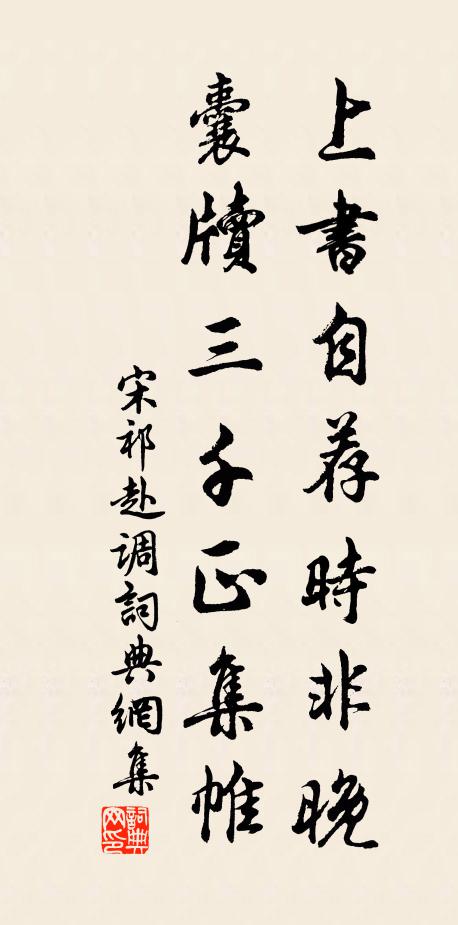 上書自荐時非晚
囊牘三千正集帷
宋祁赴调詞典網集
詞典网印